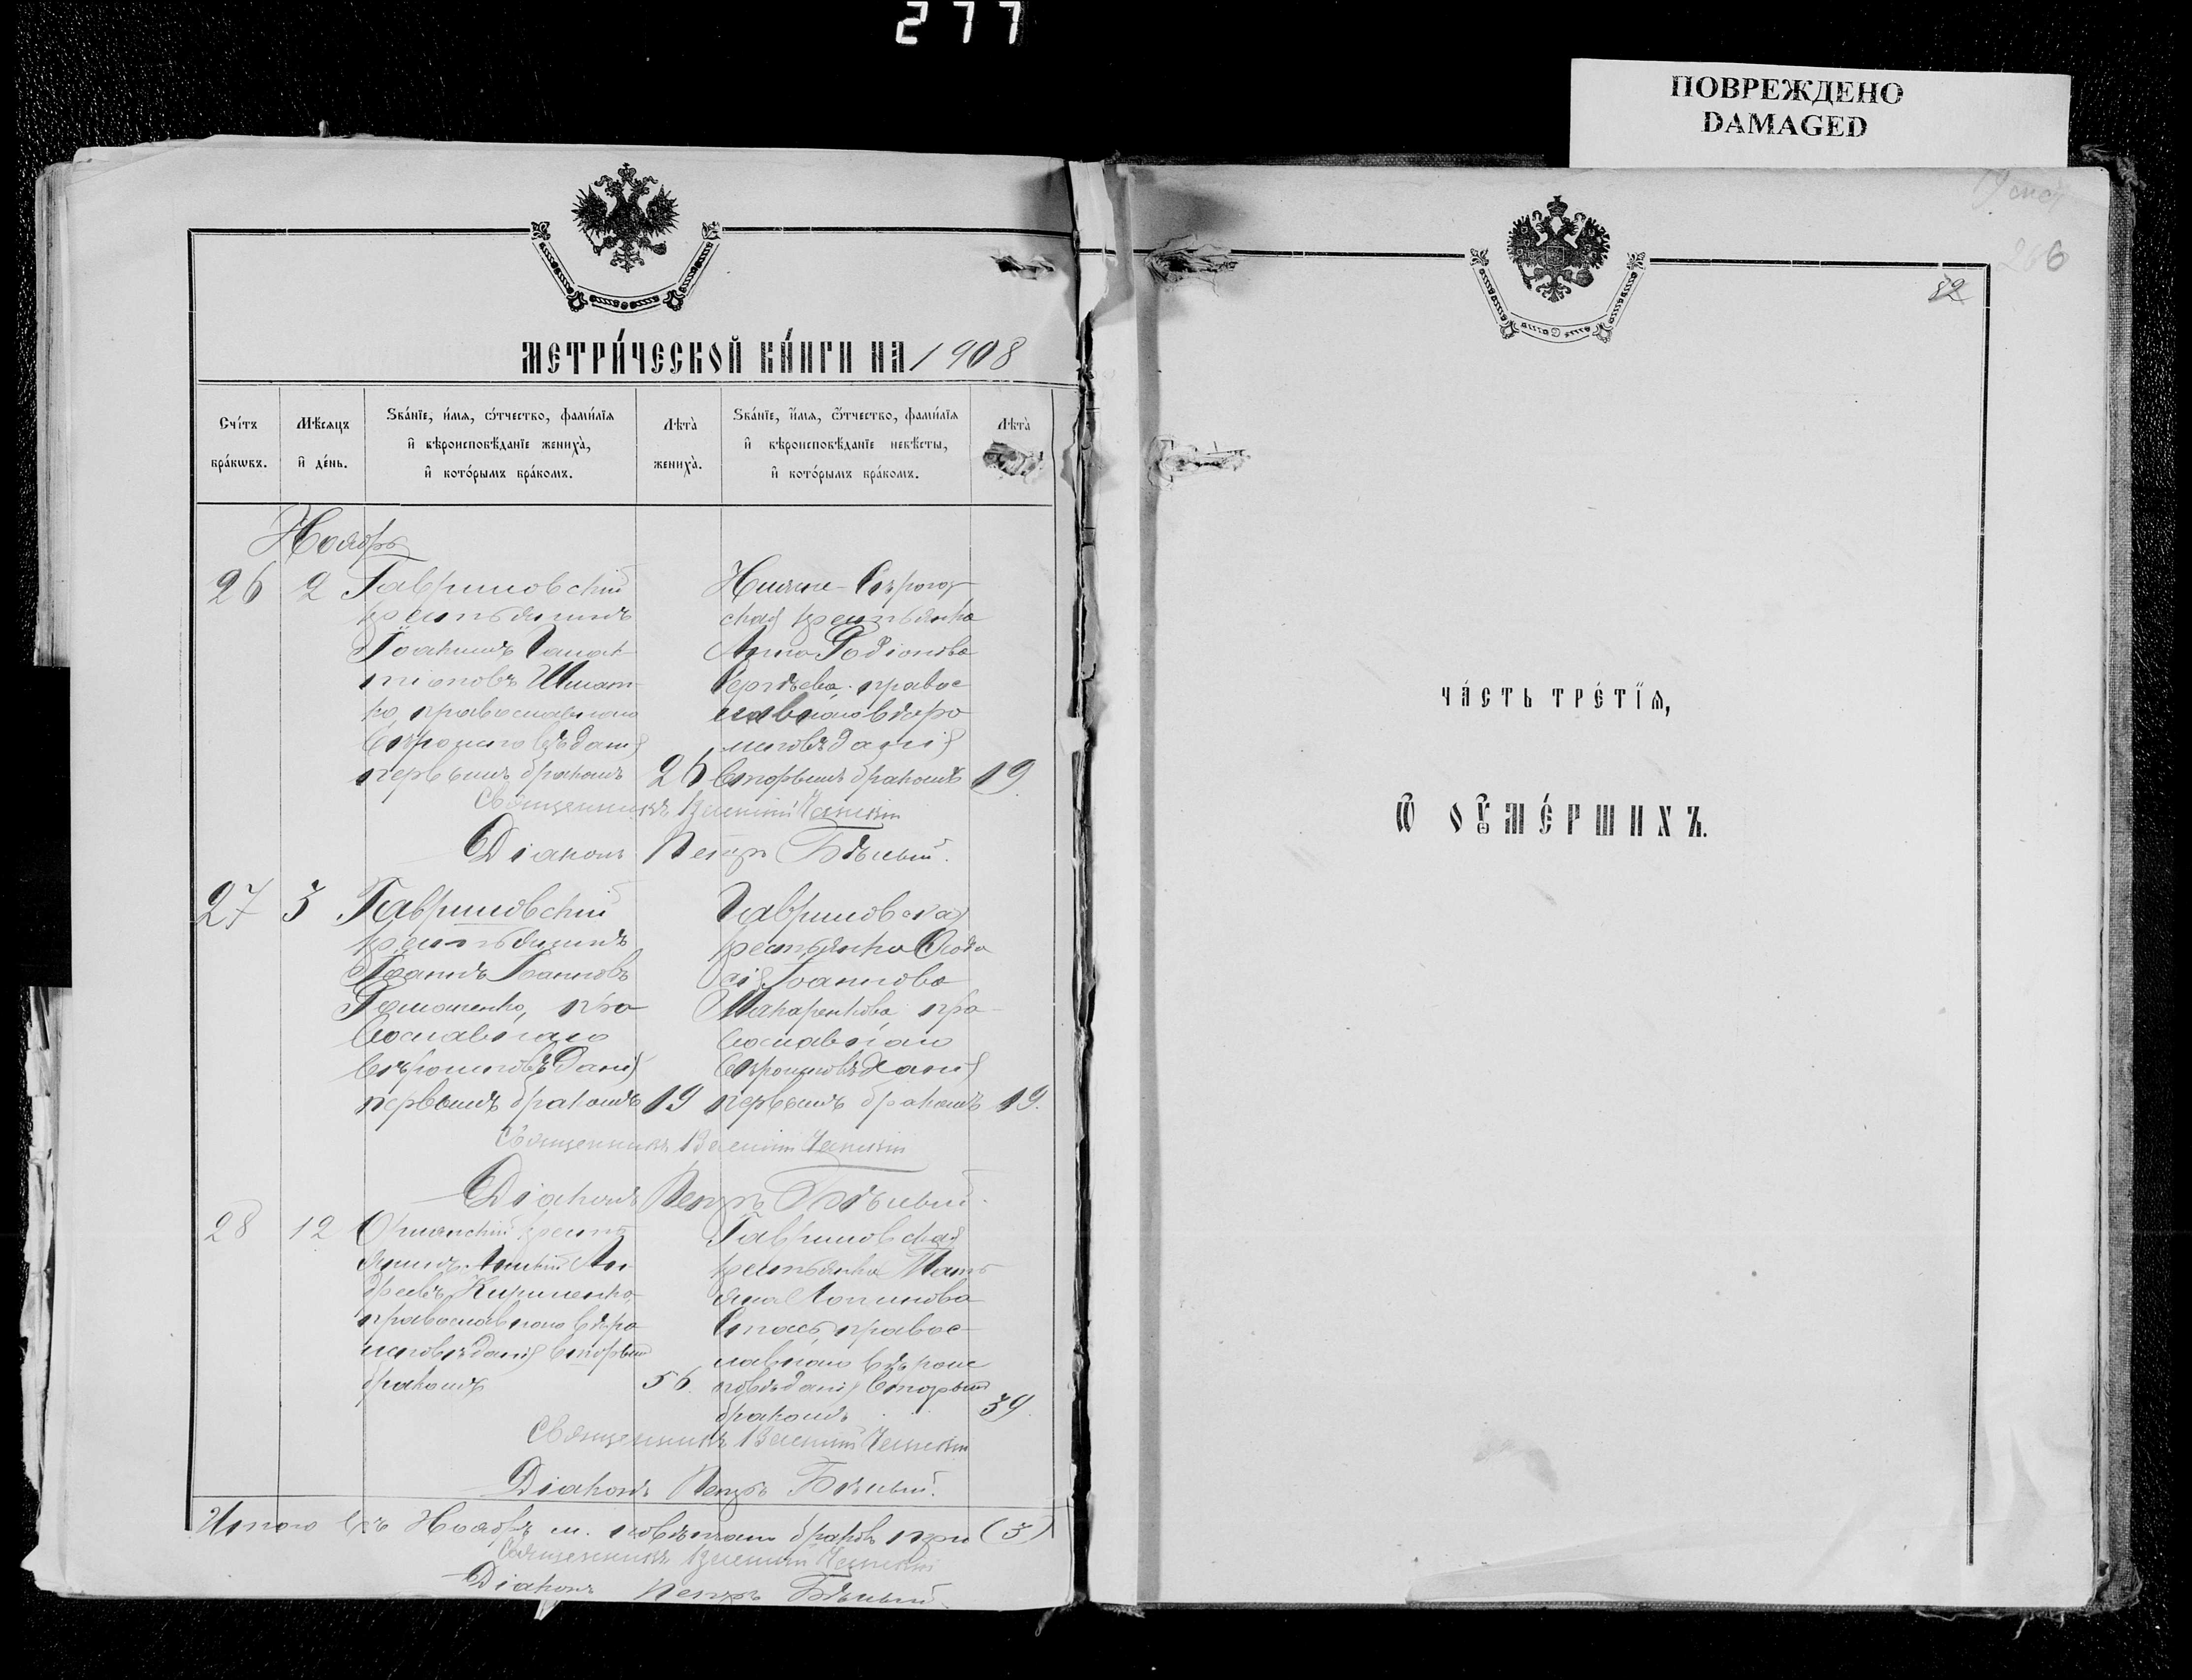 277
ПОВРЕЖДЕНО
DAMAGED
266
82
МЕТРИ́ЧЕСКОЙ КНИ́ГИ НА 1908
Сче́тъ бра́кѡвъ.
Мѣ́сяцъ и҆ де́нь.
Ѕва́нїе, и҆́мѧ, ѻ҆́тчество, фами́лїѧ и҆ вѣроисповѣ́данїе жениха̀, и҆ кото́рымъ бра́комъ.
Лѣта̀ жениха̀.
Ѕва́нїе, и҆́мѧ, ѻ҆́тчество, фами́лїѧ и҆ вѣроисповѣ́данїе невѣ́сты, и҆ кото́рымъ бра́комъ.
Лѣта̀
Ноябрь
26 2 Гавриловскій
крестьянинъ
Іоакимъ
Шмат-
ко, православнаго
вѣроисповѣданія
первымъ бракомъ 26
Нижне-Сѣрогоз-
ская крестьянка
Анна Родіонова
Сергѣева, правос-
лавнаго вѣро-
исповѣданія
вторымъ бракомъ 19
Священникъ
Діаконъ Петръ Бѣлый.
27 3 Гавриловскій
крестьянинъ
Іоаннъ Іоанновъ
пра-
вославнаго
вѣроисповѣданія
первымъ бракомъ 19
Гавриловская
крестьянка Ѳеодо-
сія Іоаннова
Макаренкова, пра-
вославнаго
вѣроисповѣданія
первымъ бракомъ 19.
Священникъ
Діаконъ Петръ Бѣлый.
28 12 крестья-
нинъ Ан-
дреевъ Кириленко,
православнаго вѣро-
исповѣданія вторымъ
бракомъ 56.
Гавриловская
крестьянка Тать-
яна Логинова
правос-
лавнаго вѣроис-
повѣданія вторымъ
бракомъ 39.
Священникъ
Діаконъ Петръ Бѣлый.
Итого въ Ноябрѣ м. повѣнчано браковъ три (3)
Священникъ
Діаконъ Петръ Бѣлый.
ЧА́СТЬ ТРЕ́ТЇѦ,
Ѡ҆ ОУ҆МЕ́РШИХЪ.